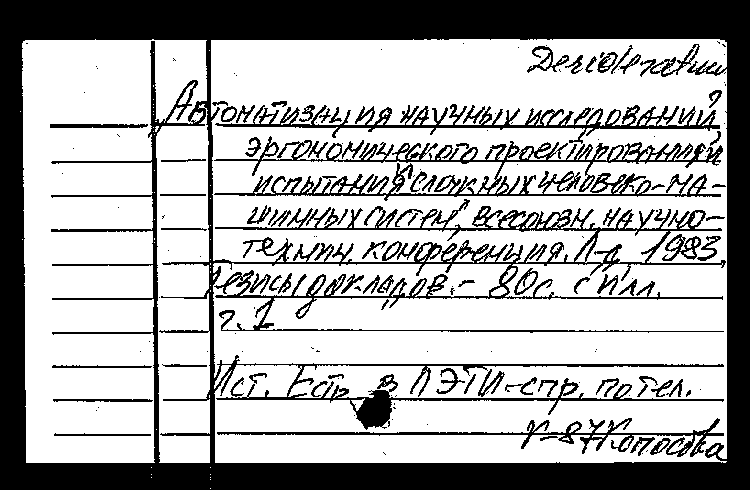 Автоматизация научных исследований,
эргономического проектирования и
испытаний сложных человеко-ма-
шинных систем", всесоюзн. научно-
технич. конференция. Л-д, 1983.
Тезисы докладов. - 80с. с илл.
т. 1
Ист. Есть в ЛЭТИ-спр. по тел.